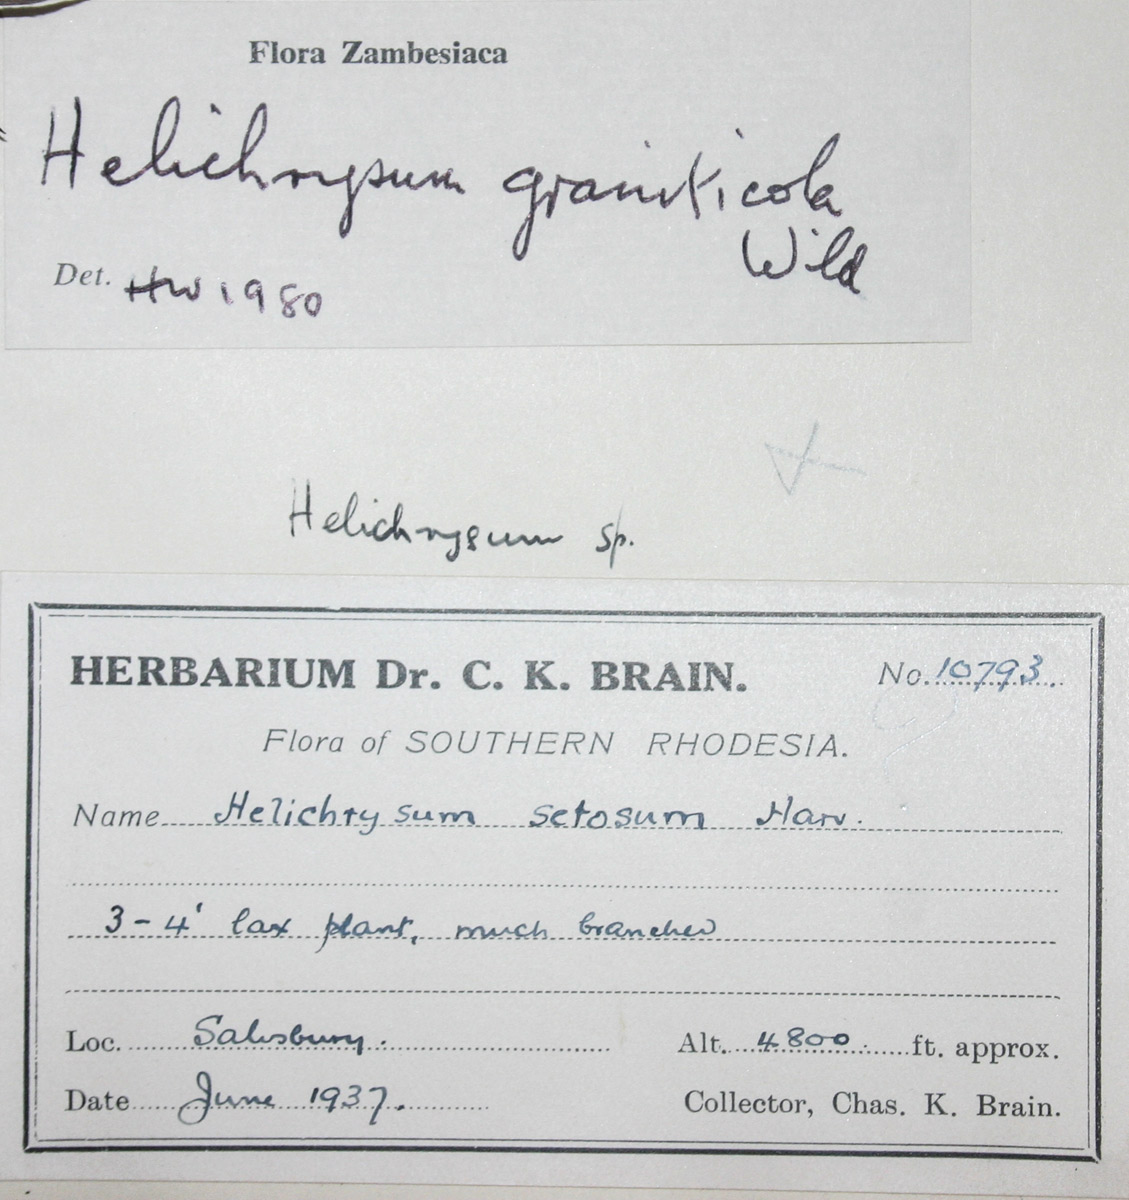 Flora Zambesiaca
Helichrysum graniticola
Wild
Det. HW 1980
Helichrysum sp.
HERBARIUM Dr. C. K. BRAIN. No. 10793
Flora of SOUTHERN RHODESIA.
Name Helichrysum setosum Harv.
3-4' lax plant, much branched
Loc. Salisbury. Alt. 4800 ft. approx.
Date June 1937. Collector, Chas. K. Brain.